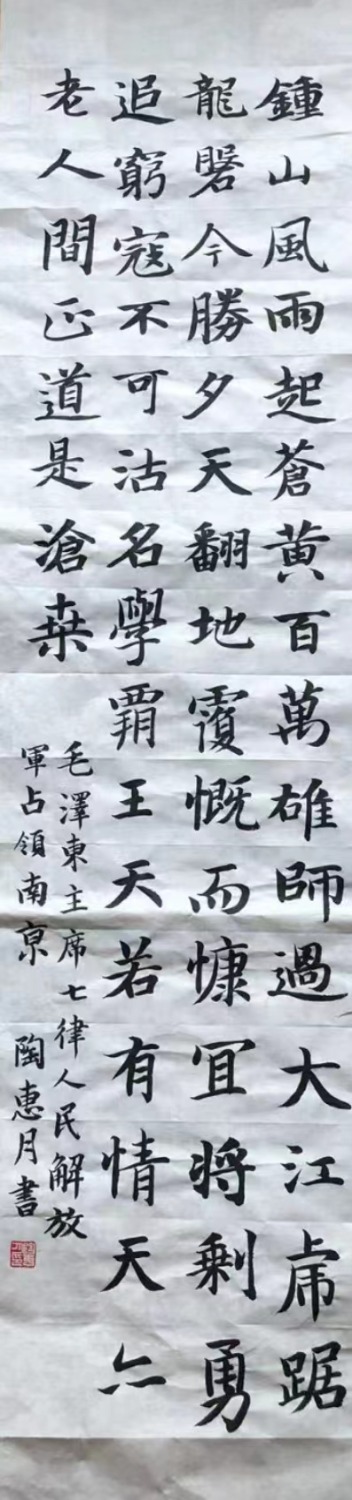 鍾山風雨起蒼黄百萬雄師過大江虎踞
龍磐今勝夕天翻地覆慨而慷宜将剩勇
追窮寇不可沽名學覇王天若有情天亦
老人間正道是滄桒
毛澤東主席七律人民解放
軍占領南京 陶惠月書